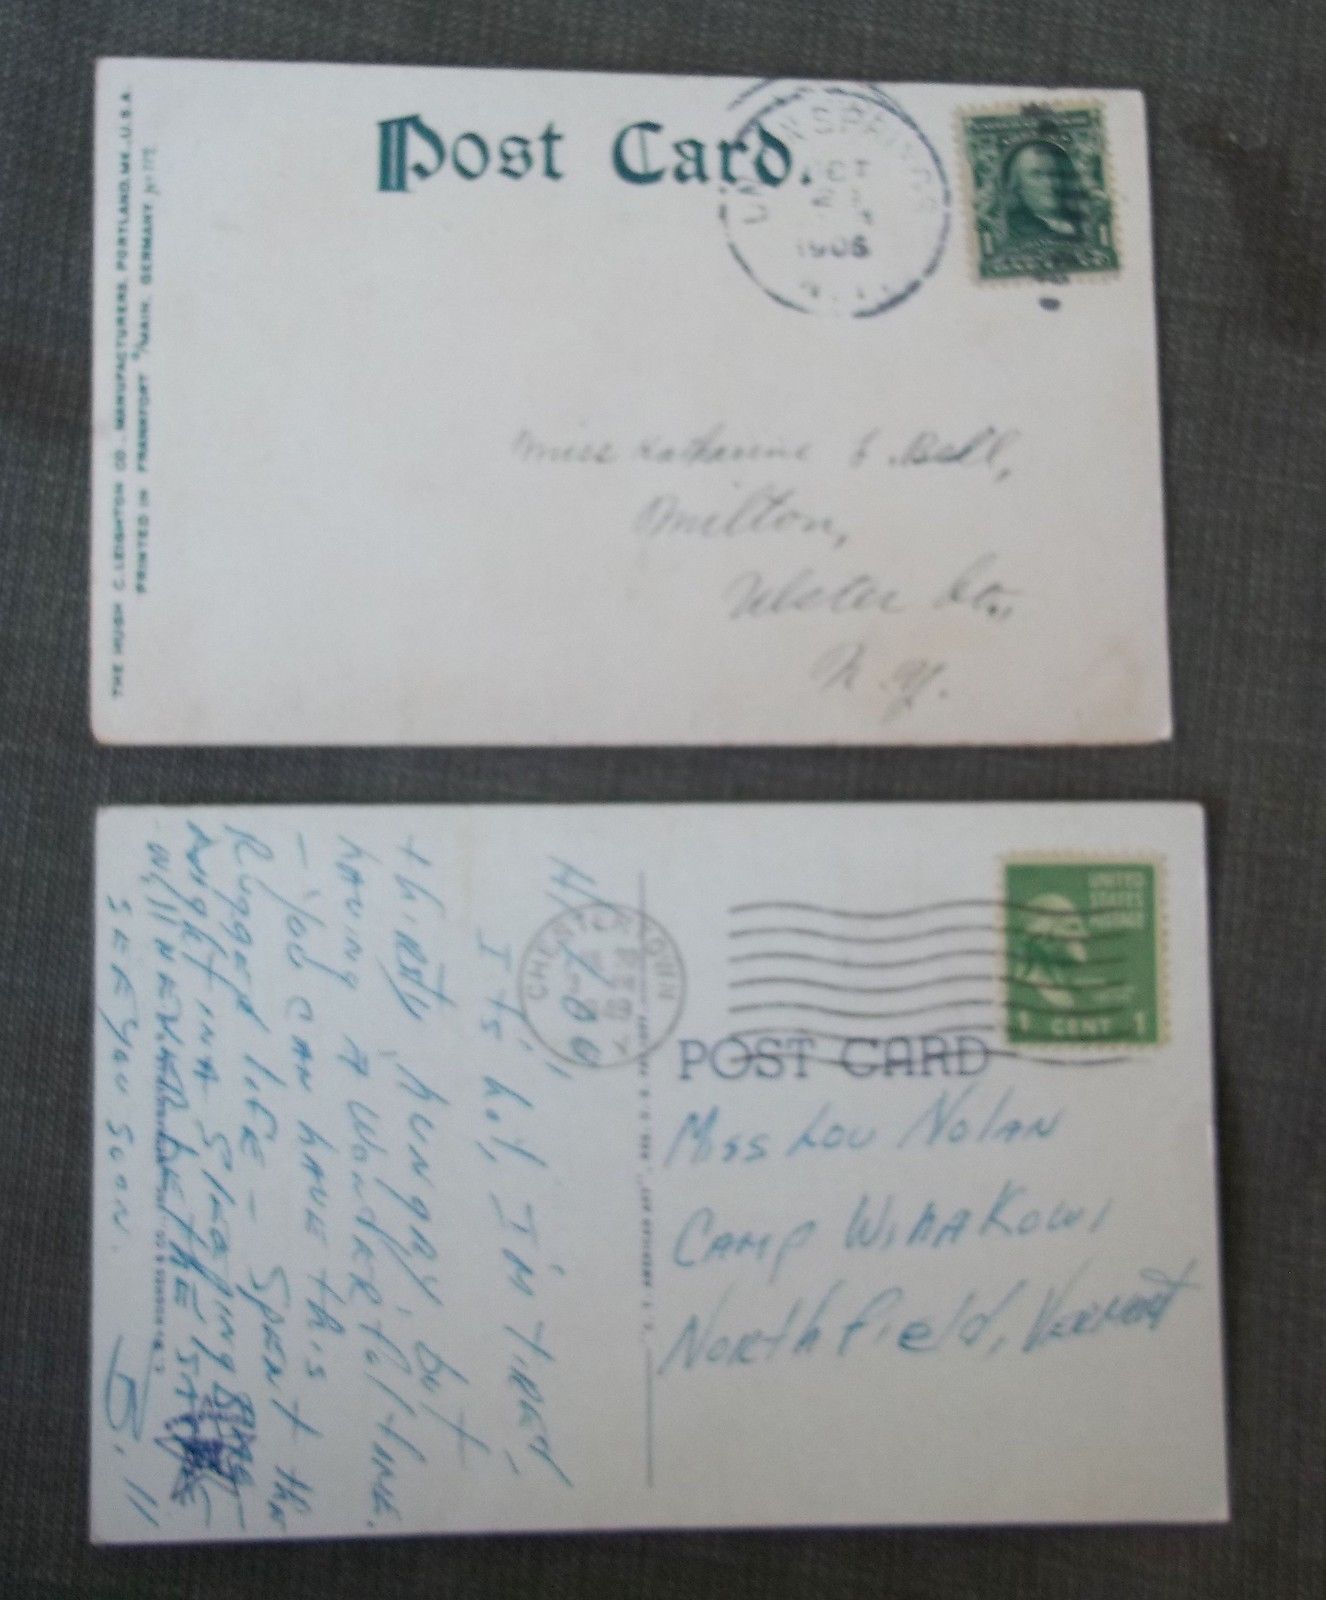 Post Card.
UNION SPRINGS
OCT
1906
N.Y.
THE HUGH C. LEIGHTON CO., MANUFACTURERS, PORTLAND, ME., U.S.A.
PRINTED IN FRANKFORT a/MAIN, GERMANY
Miss Katharine Bell,
Milton,
Ulster Co.,
N.Y.
UNITED
STATES
POSTAGE
1 CENT 1
POST CARD
Miss Lou Nolan
Camp Winakowi
Northfield, Vermont
It's hot, I'm tired,
thirsty, hungry, but
having a wonderful time.
- You can have this
Rugged life - Spent the
night in a sleeping bag
- will never be the same
SEE YOU SOON.
Bill